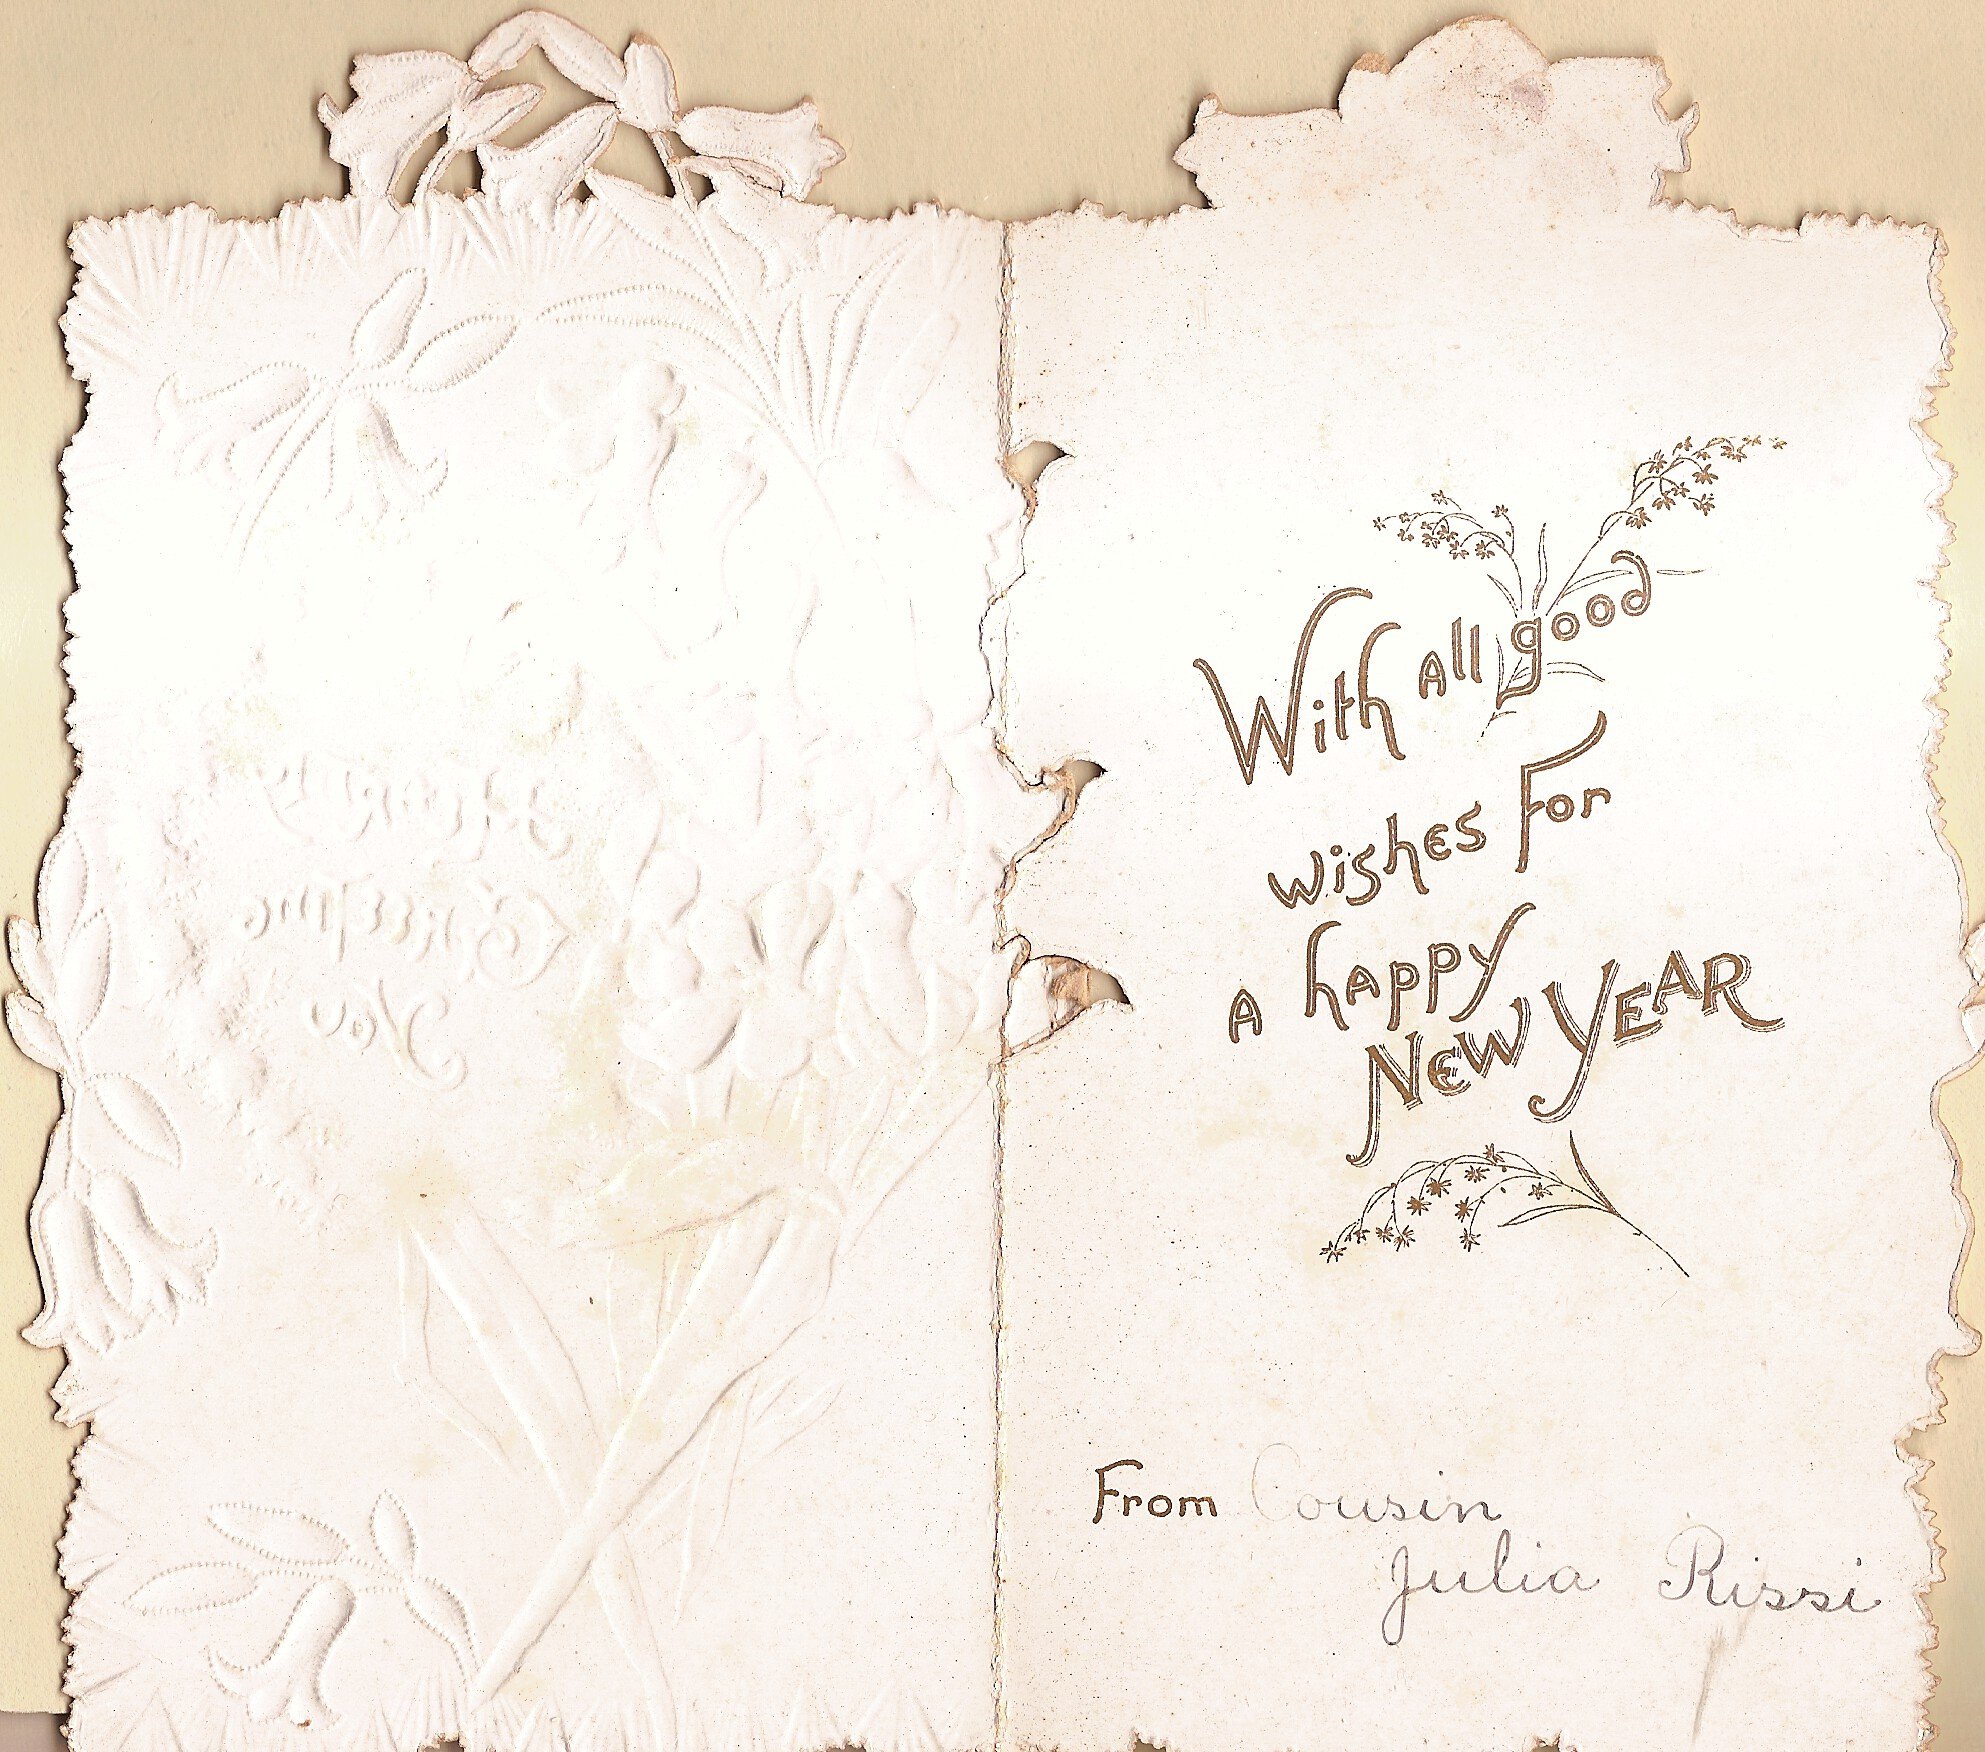 With all good
wishes for
a happy
New Year
From Cousin
Julia Rissi